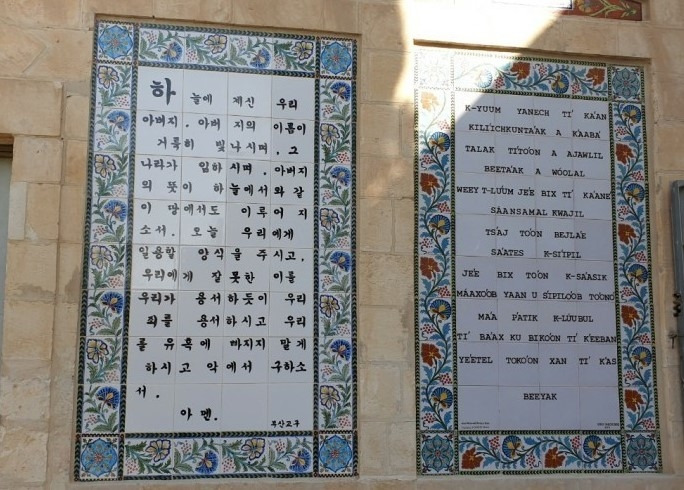 하늘에 계신 우리
아버지, 아버지의 이름이
거룩히 빛나시며, 그
나라가 임하시며, 아버지
의 뜻이 하늘에서와 같
이 땅에서도 이루어 지
소서. 오늘 우리에게
일용할 양식을 주시고,
우리에게 잘못한 이를
우리가 용서하듯이 우리
죄를 용서하시고 우리
를 유혹에 빠지지 말게
하시고 악에서 구하소
서.
아멘.
부산교구
K-YUUM YANECH TI' KA'AN
KILI'ICHKUNTA'AK A K'AABA'
TALAK TI'TO'ON A AJAWLIL
BEETA'AK A WÓOLAL
WEEY T-LU'UM JE'E BIX TI' KA'ANE'
SÁANSAMAL KWAJIL
TS'AJ TO'ON BEJLA'E'
SA'ATES K-SI'IPIL
JE'E BIX TO'ON K-SA'ASIK
MÁAXO'OB YAAN U SI'IPILO'OB TO'ONO'
MA'A P'ATIK K-LÚUBUL
TI' BA'AX KU BIKO'ON TI' K'EEBAN
YÉETEL TOKO'ON XAN TI' K'AS
BEEYAK